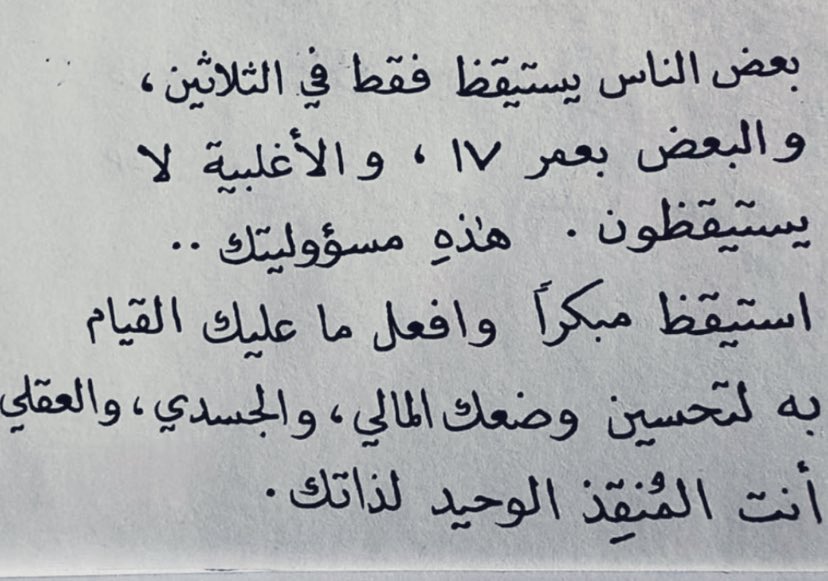 بعض الناس يستيقظ فقط في الثلاثين،
والبعض بعمر ١٧، والأغلبية لا
يستيقظون. هٰذهِ مسؤوليتك ..
استيقظ مبكراً وافعل ما عليك القيام
به لتحسين وضعك المالي، والجسدي، والعقلي
أنت المُنقِذ الوحيد لذاتك.